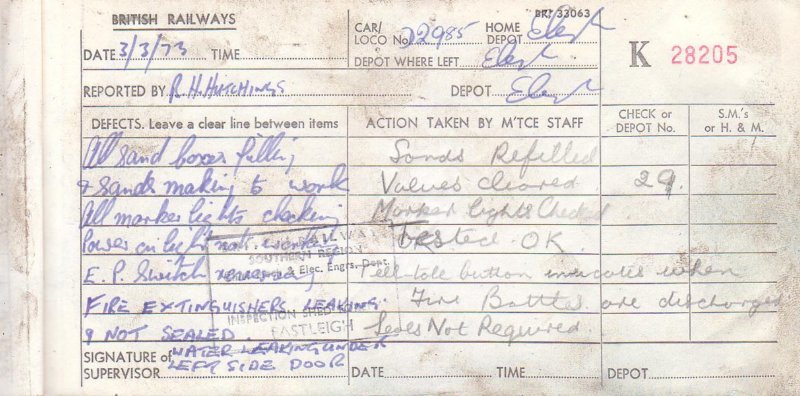 BRITISH RAILWAYS
BR. 33063
DATE 3/3/73 TIME
CAR/ LOCO No. 22985 HOME DEPOT
K 28205
DEPOT WHERE LEFT
REPORTED BY R.H.HUTCHINGS DEPOT
DEFECTS. Leave a clear line between items ACTION TAKEN BY M'TCE STAFF CHECK or DEPOT No. S.M.'s or H. & M.
All sand boxes filling Sands Refilled
& Sands making to work Valves cleared 29.
All marker lights checking Marker lights Checked
Power on light not working tested OK
SOUTHERN REGION
E.P. Switch & Elec. Engrs. Dept. Tell-tale button indicates when
FIRE EXTINGUISHERS LEAKING. Fire Bottles are discharged
INSPECTION SHED
& NOT SEALED. EASTLEIGH Seals Not Required
WATER LEAKING UNDER
SIGNATURE of SUPERVISOR LEFT SIDE DOOR DATE TIME DEPOT